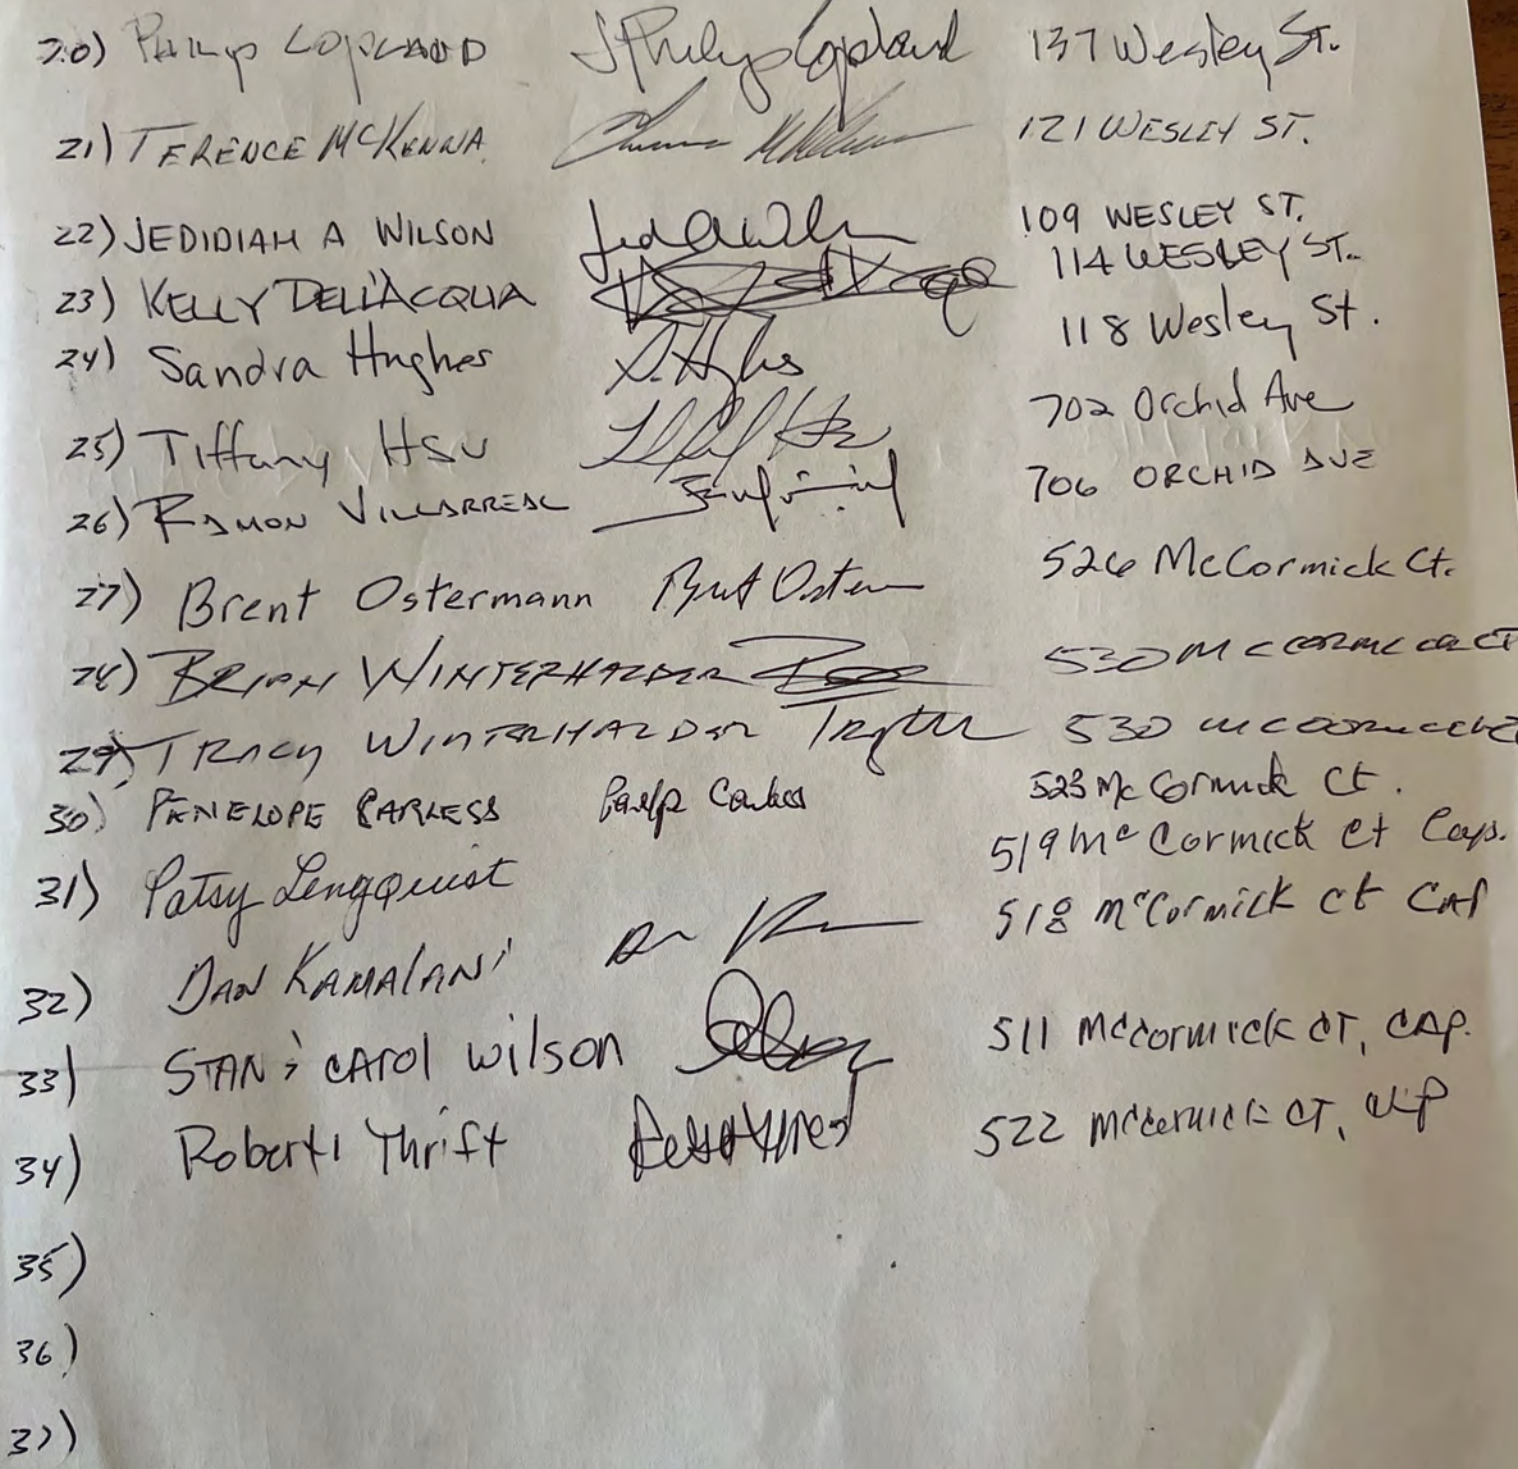 20) Philip Copland J Philip Copland 137 Wesley St.
21) TERENCE MCKENNA 121 WESLEY ST.
22) JEDIDIAH A WILSON 109 WESLEY ST.
23) KELLY DELL'ACQUA 114 WESLEY ST.
24) Sandra Hughes S. Hughes 118 Wesley St.
25) Tiffany HSU 702 Orchid Ave
26) RAMON VILLARREAL 706 ORCHID AVE
27) Brent Ostermann 526 McCormick Ct.
28) BRIAN WINTERHALDER 530 McCORMICK CT
29) TRACY WINTERHALDER 530 McCORMICK
30) PENELOPE CARLESS 523 McCormick Ct.
31) Patsy Lengquist 519 McCormick Ct Cap.
32) DAN KAMALANI 518 McCormick Ct CAP
33) STAN & CAROL Wilson 511 McCormick CT, CAP.
34) Thrift 522 McCormick CT, CAP
35)
36)
37)